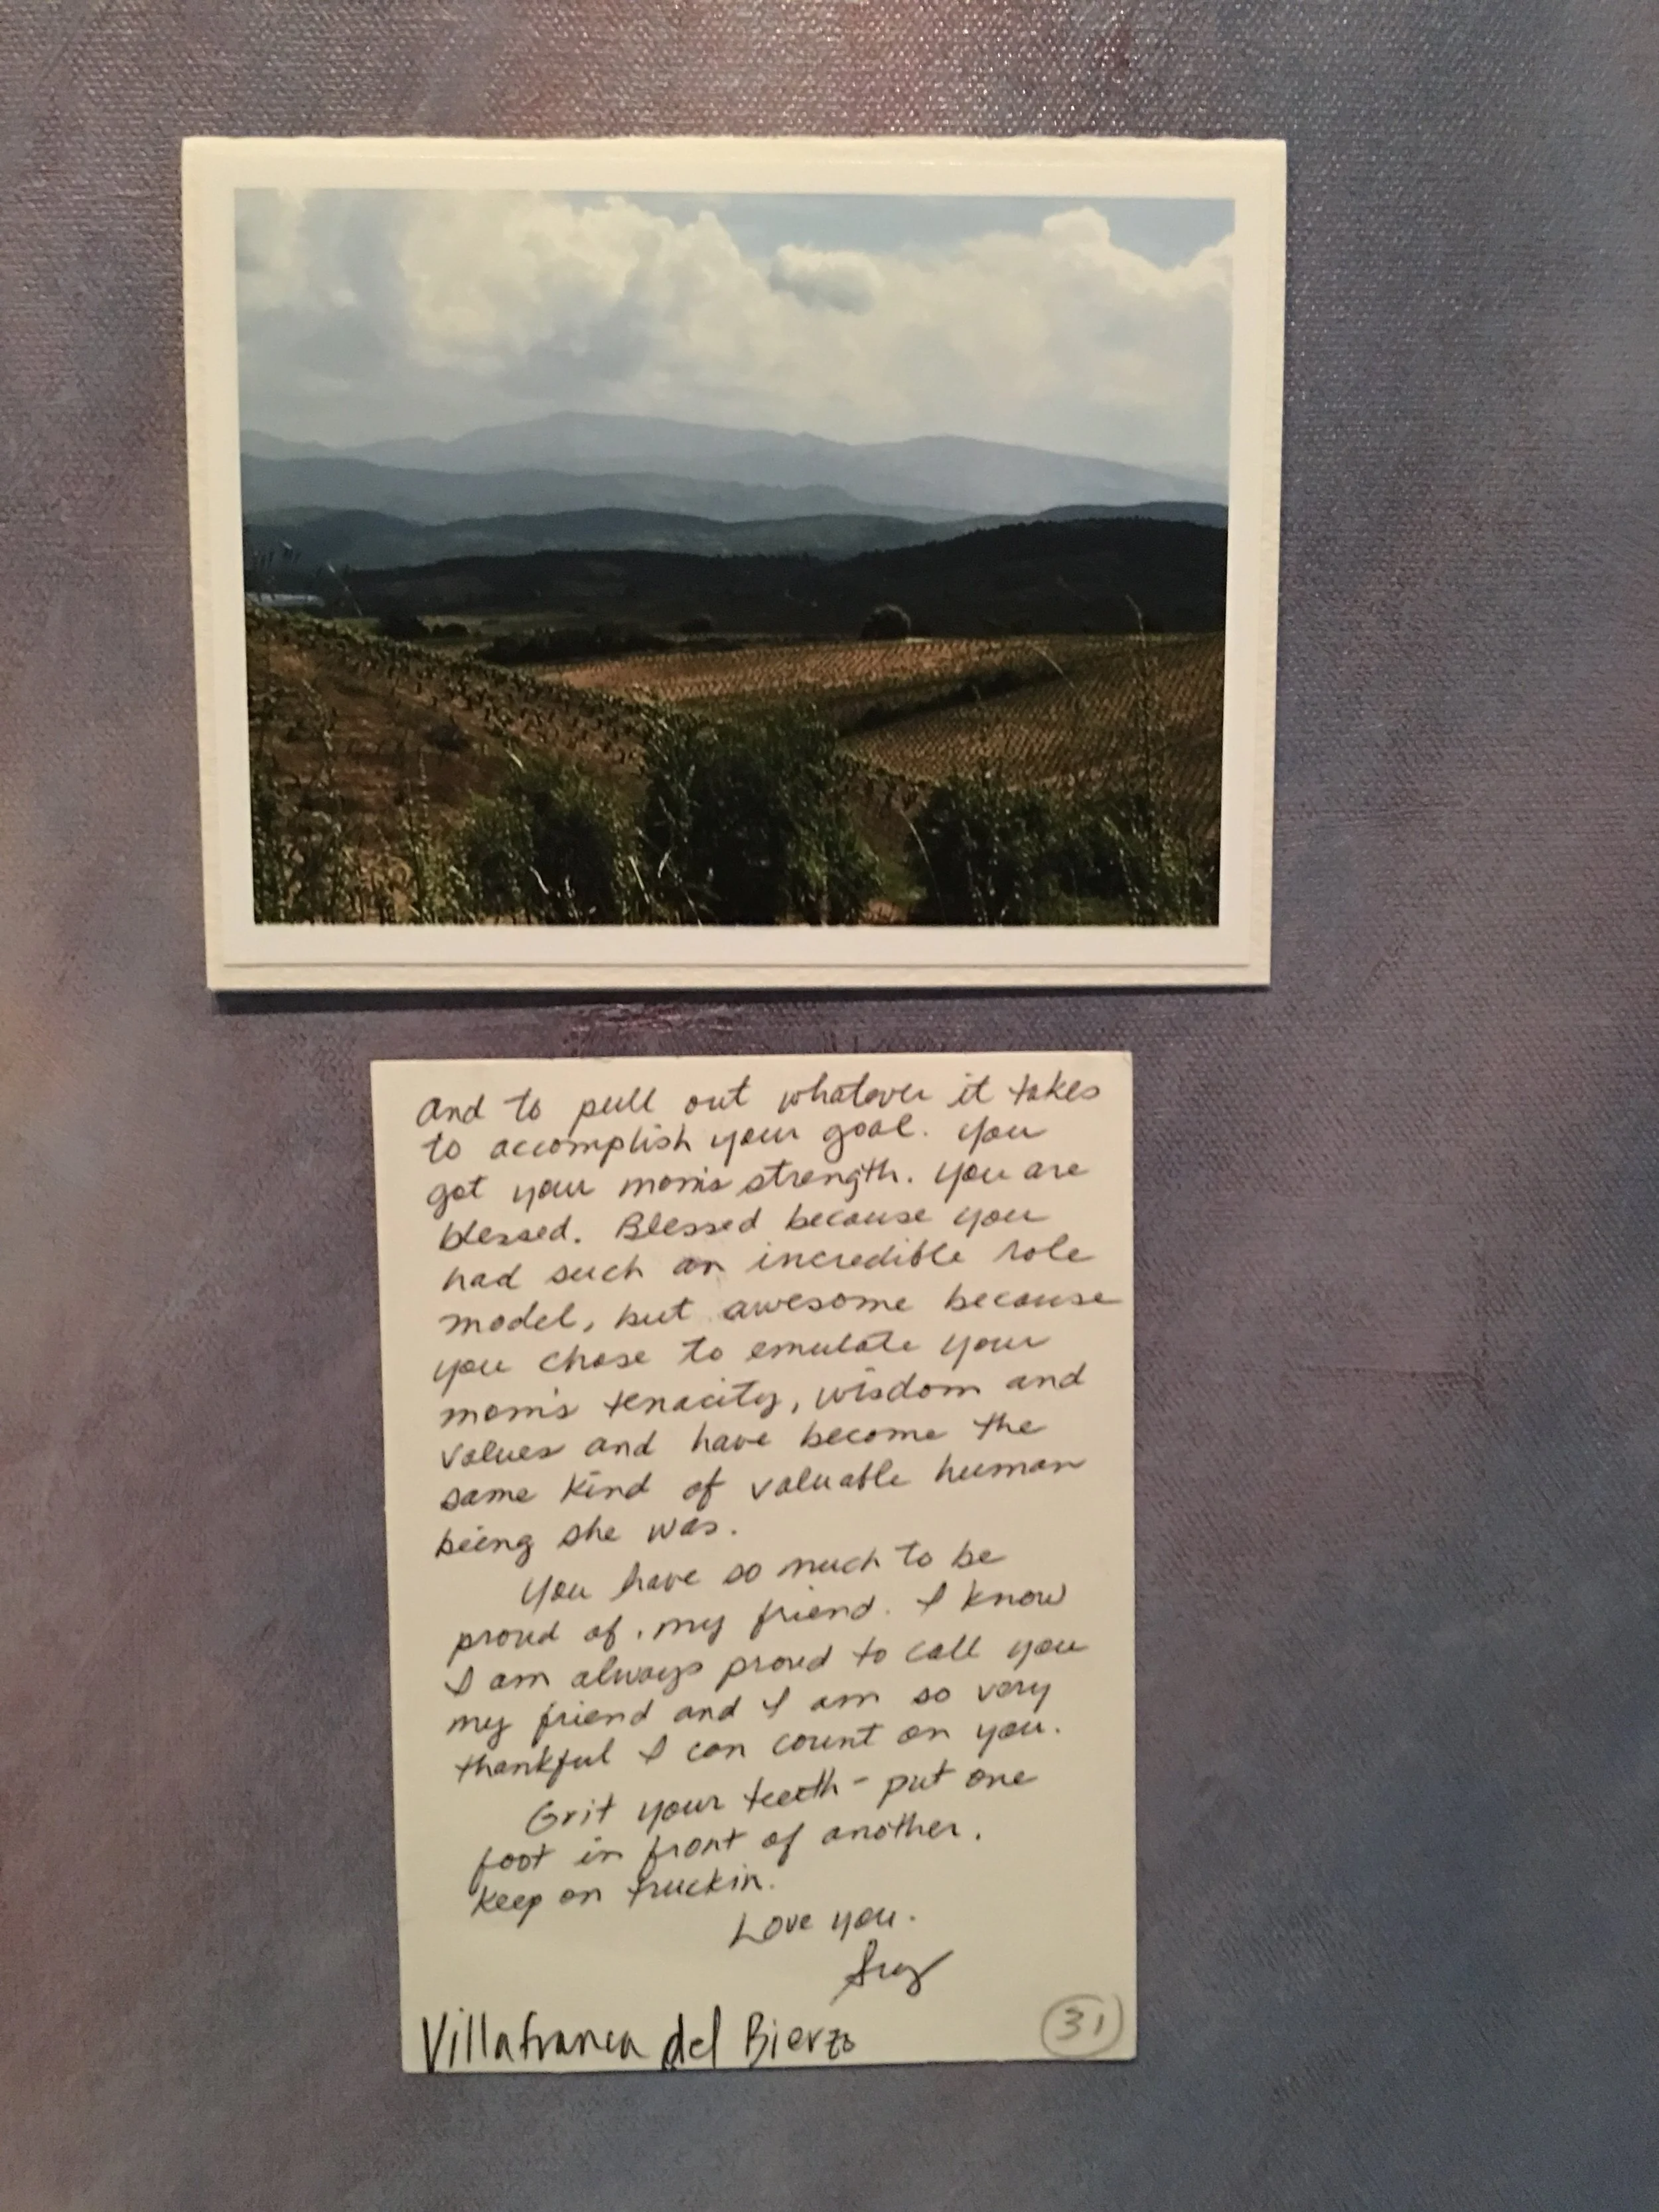 and to pull out whatever it takes
to accomplish your goal. You
got your mom's strength. You are
blessed. Blessed because you
had such an incredible role
model, but awesome because
you chose to emulate your
mom's tenacity, wisdom and
values and have become the
same kind of valuable human
being she was.
You have so much to be
proud of, my friend. I know
I am always proud to call you
my friend and I am so very
thankful I can count on you.
Grit your teeth - put one
foot in front of another.
Keep on truckin.
Love you.
Villafranca del Bierzo
31